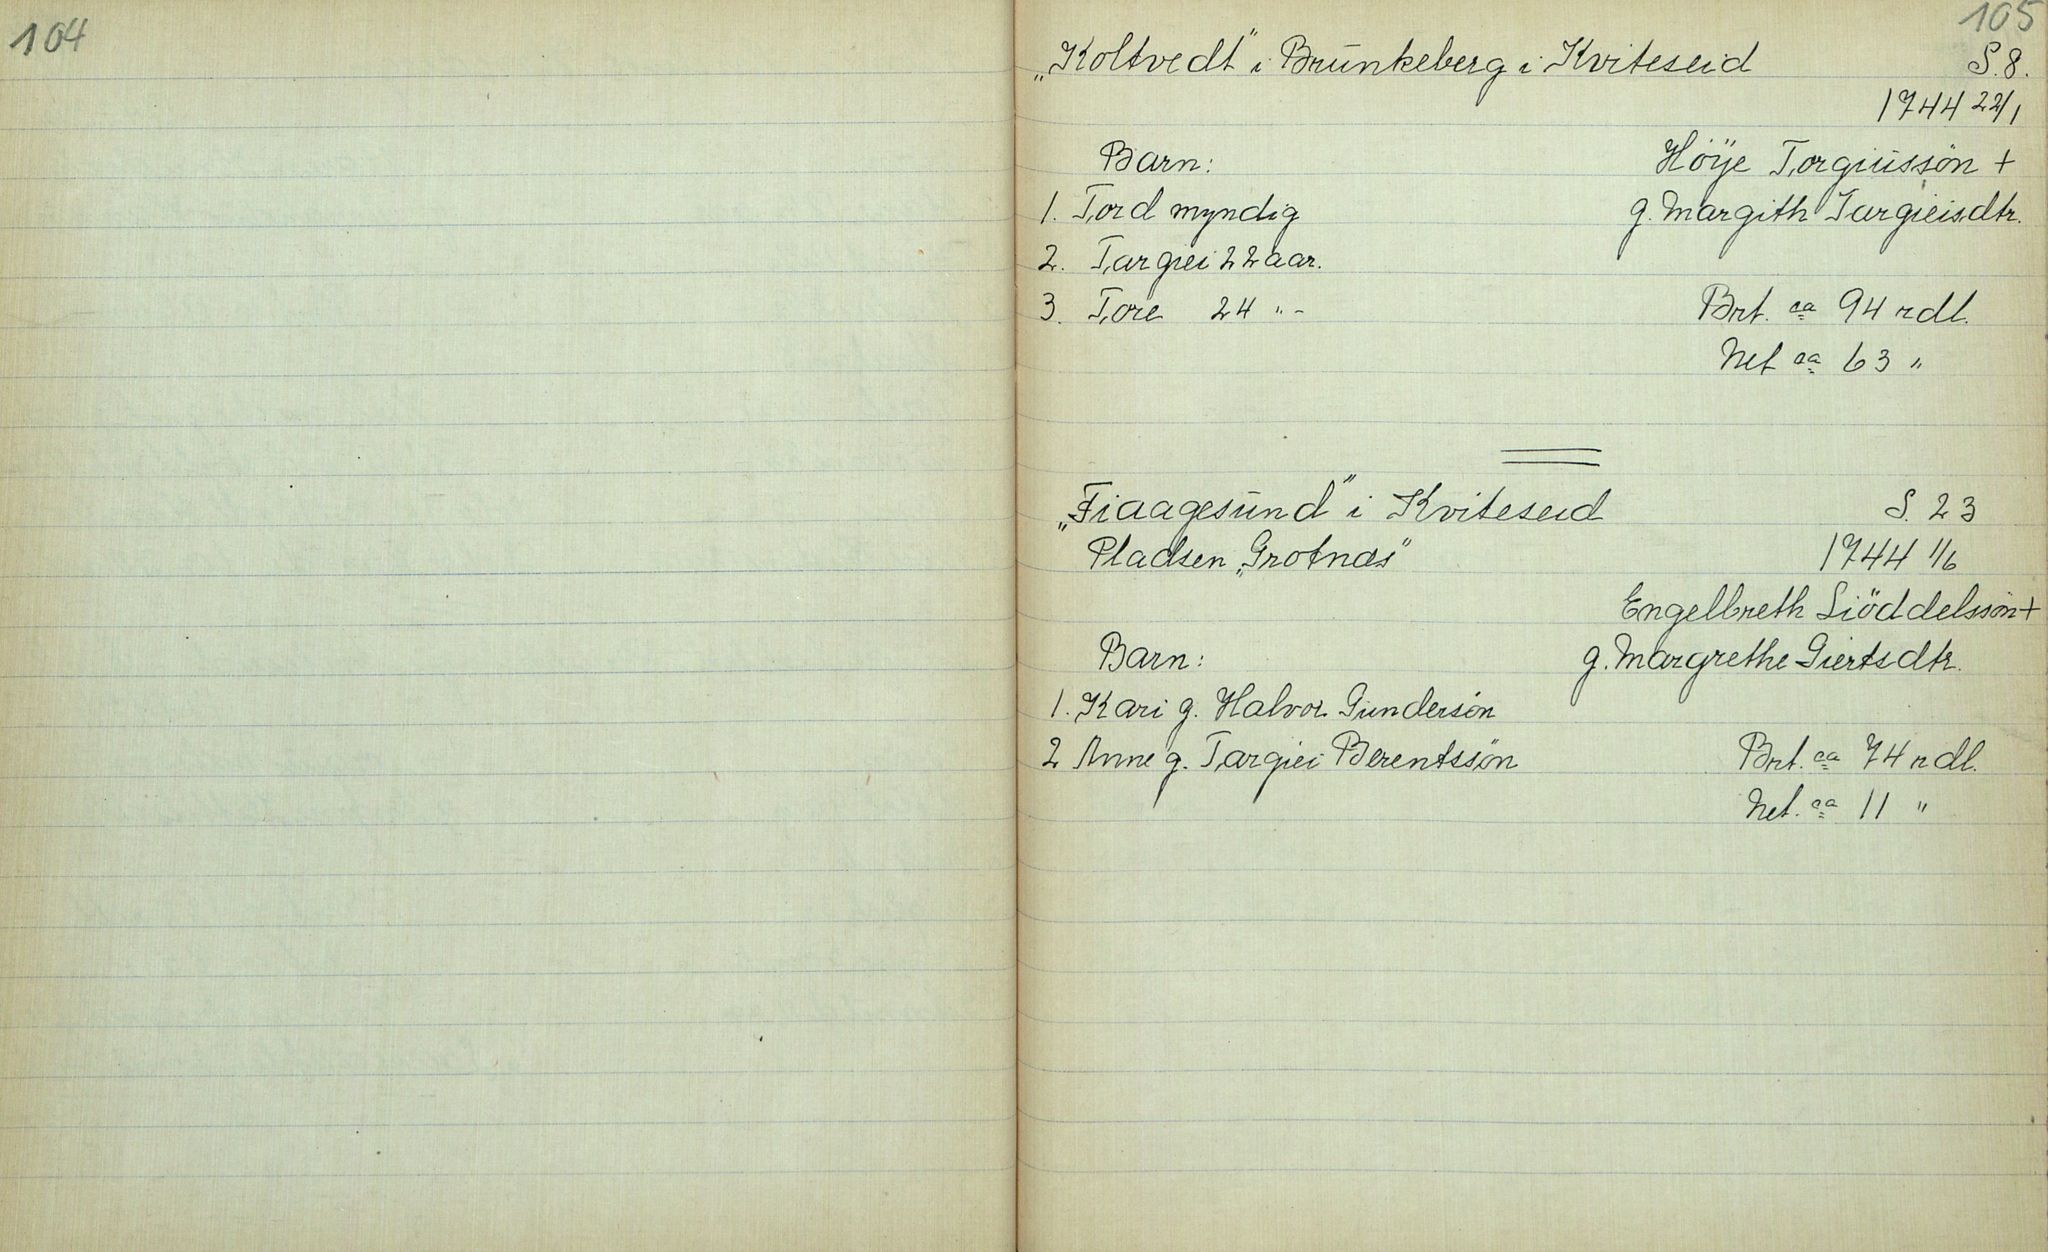 104
105
„Koltvedt" i Brunkeberg i Kviteseid S. 8.
1744 22/1
Barn: Höÿe Torgiussön +
1. Tord myndig g. Margith Targieisdtr.
2. Targiei 22 aar.
3. Tore 24 " - Brt. ca 94 rdl.
Net ca 63 "
„Fiaagesund" i Kviteseid S. 23
Pladsen „Grotnæs" 1744 1/6
Engelbreth Siöddelssön +
Barn: g. Margrethe Giertsdtr.
1. Kari g. Halvor Gundersön
2 Anne g. Targiei Berentssön Brt. ca 74 rdl.
Net. ca 11 "